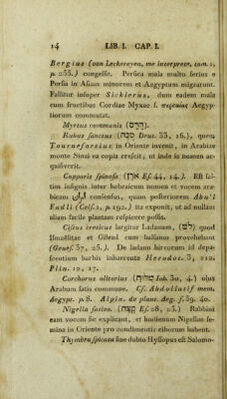 14 LIB. I. CAP. I.
Bergius (van Leeherzyen, me interprete, tom. 1,
p. 233.) congessit. Persica mala multo serius e
Persia in Asiam minorem et Aegyptum migrarunt.
Fallitur insuper Sicklerus, dum eadem mala
cum fructibus Cordiae Myxae f. περσείας Aegyp-
tiorum commutat.
Myrtus communis (הדס).
Rubus sanctus (סנה Deut. 33, 16.), quem
Tournefortius in Oriente invenit, in Arabiae
monte Sinai ea copia crescit, ut inde is nomen ac-
quisiverit.
Capparis spinosa Es. 44, 14.). Est sal-
tim insignis inter hebraicum nomen et vocem ara-
bicam consensus, quam posteriorem Abu'l
Fadli (Cels. 2, p. 192.) ita exponit, ut ad nullam
aliam facile plantam respicere possis.
Cistus creticus largitur Ladanum, (לט) quod
Ismaëlitae et Gibeal cum balsamo provehebant
(Genes. 37, 25.). De ladano hircorum id depe-
scentium barbis inhaerente Herodot. 3, 112.
Plin. 12, 17.
Corchorus olitorius (מלוח Iob. 30, 4.) olus
Arabum satis commune. Cf. Abdollatif mem.
Aegypt. p. 8. Alpin. de plant. Aeg. f. 39. 40.
Nigella sativa. (קצח Es. 28, 25.) Rabbini
eam vocem sic explicant, et hodienum Nigellae se-
mina in Oriente pro condimentis ciborum habent.
Thymbra spicata sine dubio Hyssopus est Salomo-